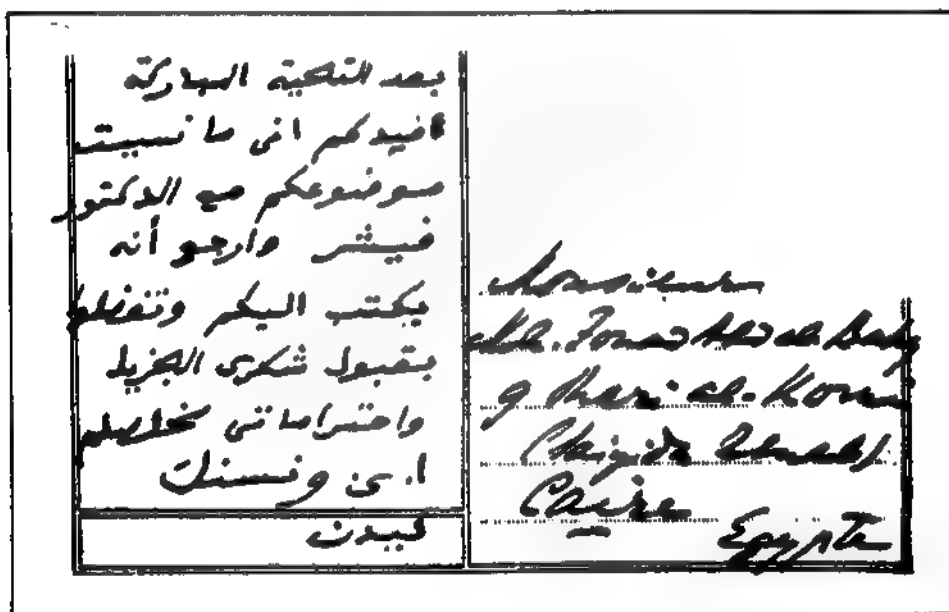 بعد التحية المباركة
افيدكم انى ما نسيت
موضوعكم مع الدكتور
فيشر وارجو أنه
يكتب اليكم وتفضلوا
بقبول شكرى الجزيل
واحتراماتى مخلصكم
ا. ى ونسنك
ليدن
Monsieur
M. Fouad Abd al-Baky
9 Shari al-Kom
Caire
Egypte